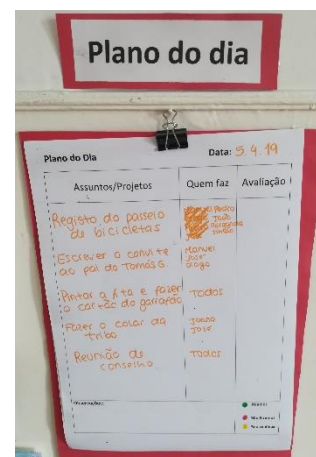 Plano do dia
Plano do Dia
Data: 5.4.19
Assuntos/Projetos
Quem faz
Avaliação
Registo do passeio
de bicicletas
Pedro
João
Simão
Escrever o convite
ao pai do Tomás G.
Manuel
José
Diogo
Pintar a fita e fazer
o cartão do garrafão
Todos
Fazer o colar da
tribo
Joana
José
Reunião de
conselho
Todos